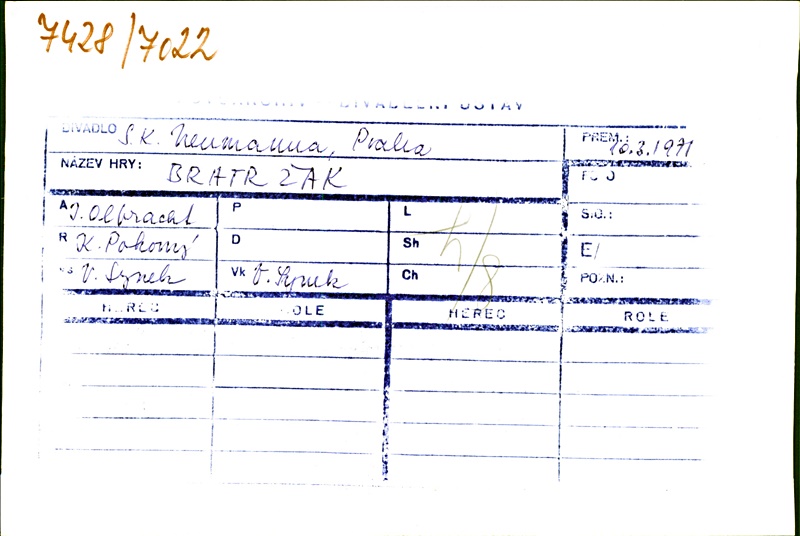 7428/7022
DIVADELNÍ ÚSTAV
DIVADLO S.K. Neumanna, Praha PREM.: 10.3.1971
NÁZEV HRY: BRATR ŽAK
A I. Olbracht P L S.O.:
R K. Pokorný D Sh 4/8 E/
V. Synek Vk V. Synek Ch POZN.:
HEREC ROLE HEREC ROLE